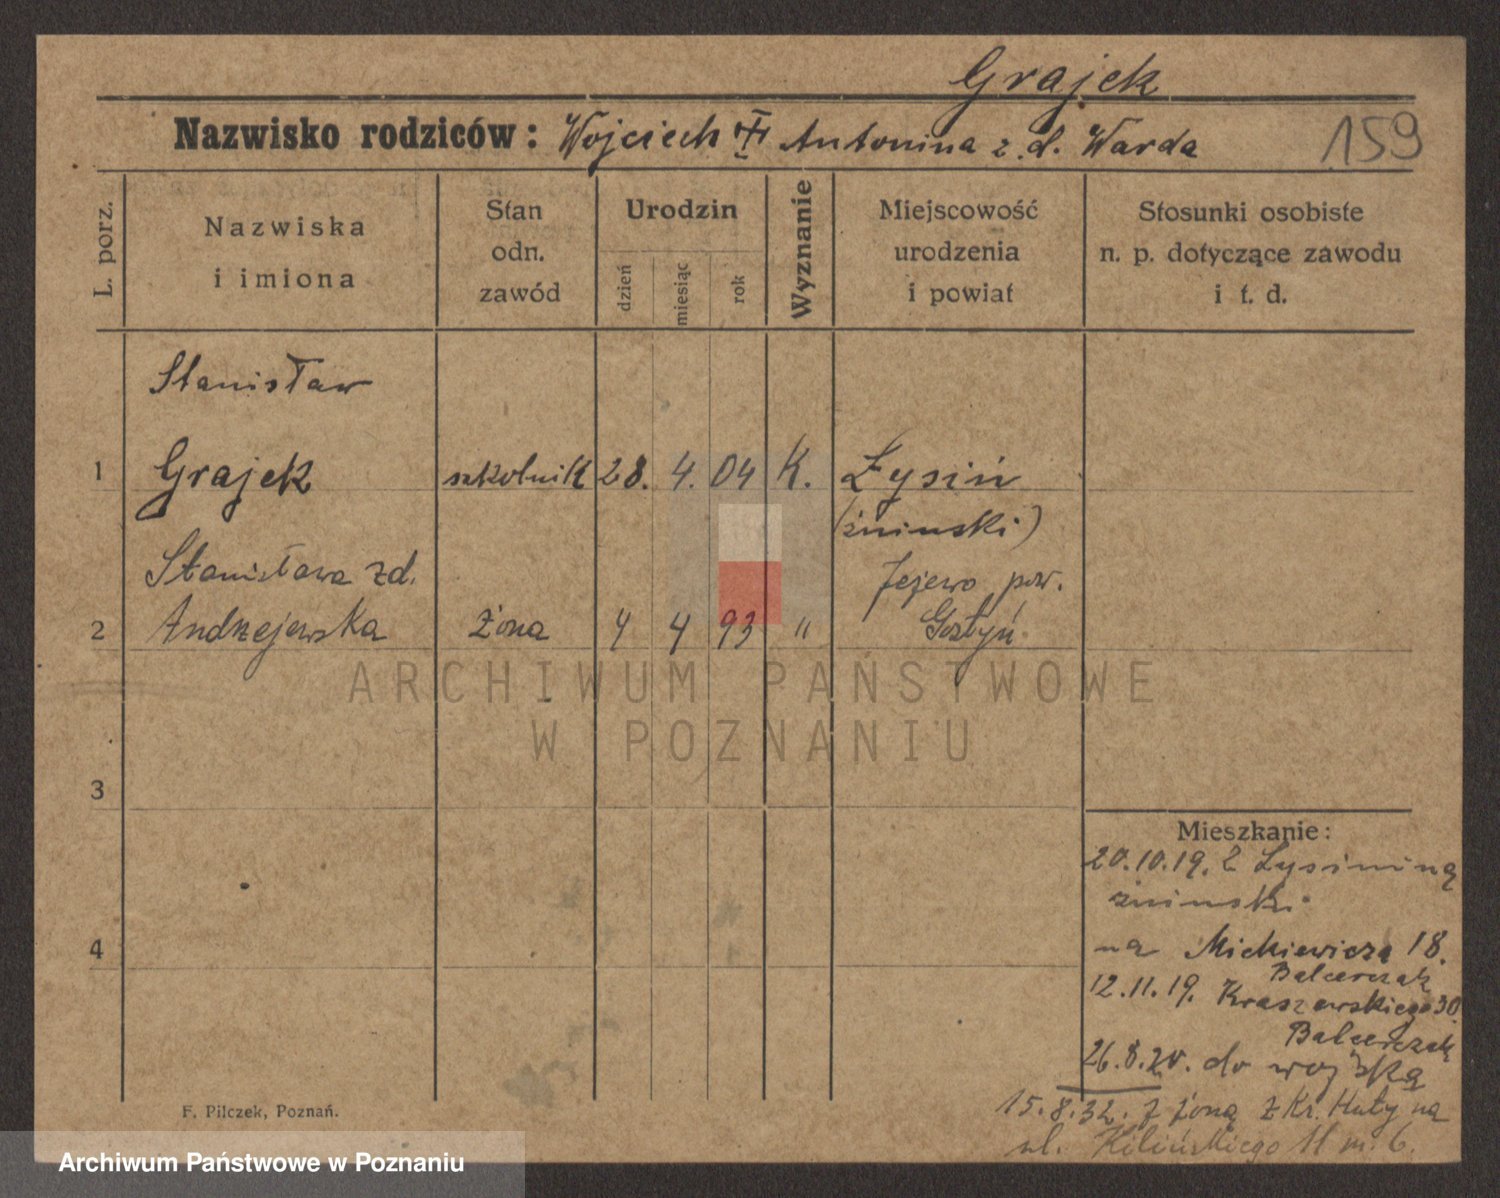 Grajek
Nazwisko rodziców: Wojciech Antonina z d. Warda 159
L. porz.
Nazwiska
i imiona
Stan
odn.
zawód
Urodzin
dzień
miesiąc
rok
Wyznanie
Miejscowość
urodzenia
i powiat
Stosunki osobiste
n. p. dotyczące zawodu
i t. d.
Stanisław
1 Grajek szkolnik 28. 4. 04 K. Łysiń
(żninski)
Stanisława zd. Jejewo pow.
2 Andrzejewska żona 4 4 93 " Gostyń
ARCHIWUM PAŃSTWOWE
W POZNANIU
3
Mieszkanie:
20.10.19. Z Łysinina
żninski
4 na Mickiewicza 18.
Balcerczak
12.11.19. Kraszewskiego 30.
Balcerczak
26.8.20. do wojska
15.8.32. z żoną z Kr. Huty na
ul. Kilińskiego 11 m. 6.
F. Pilczek, Poznań.
Archiwum Państwowe w Poznaniu